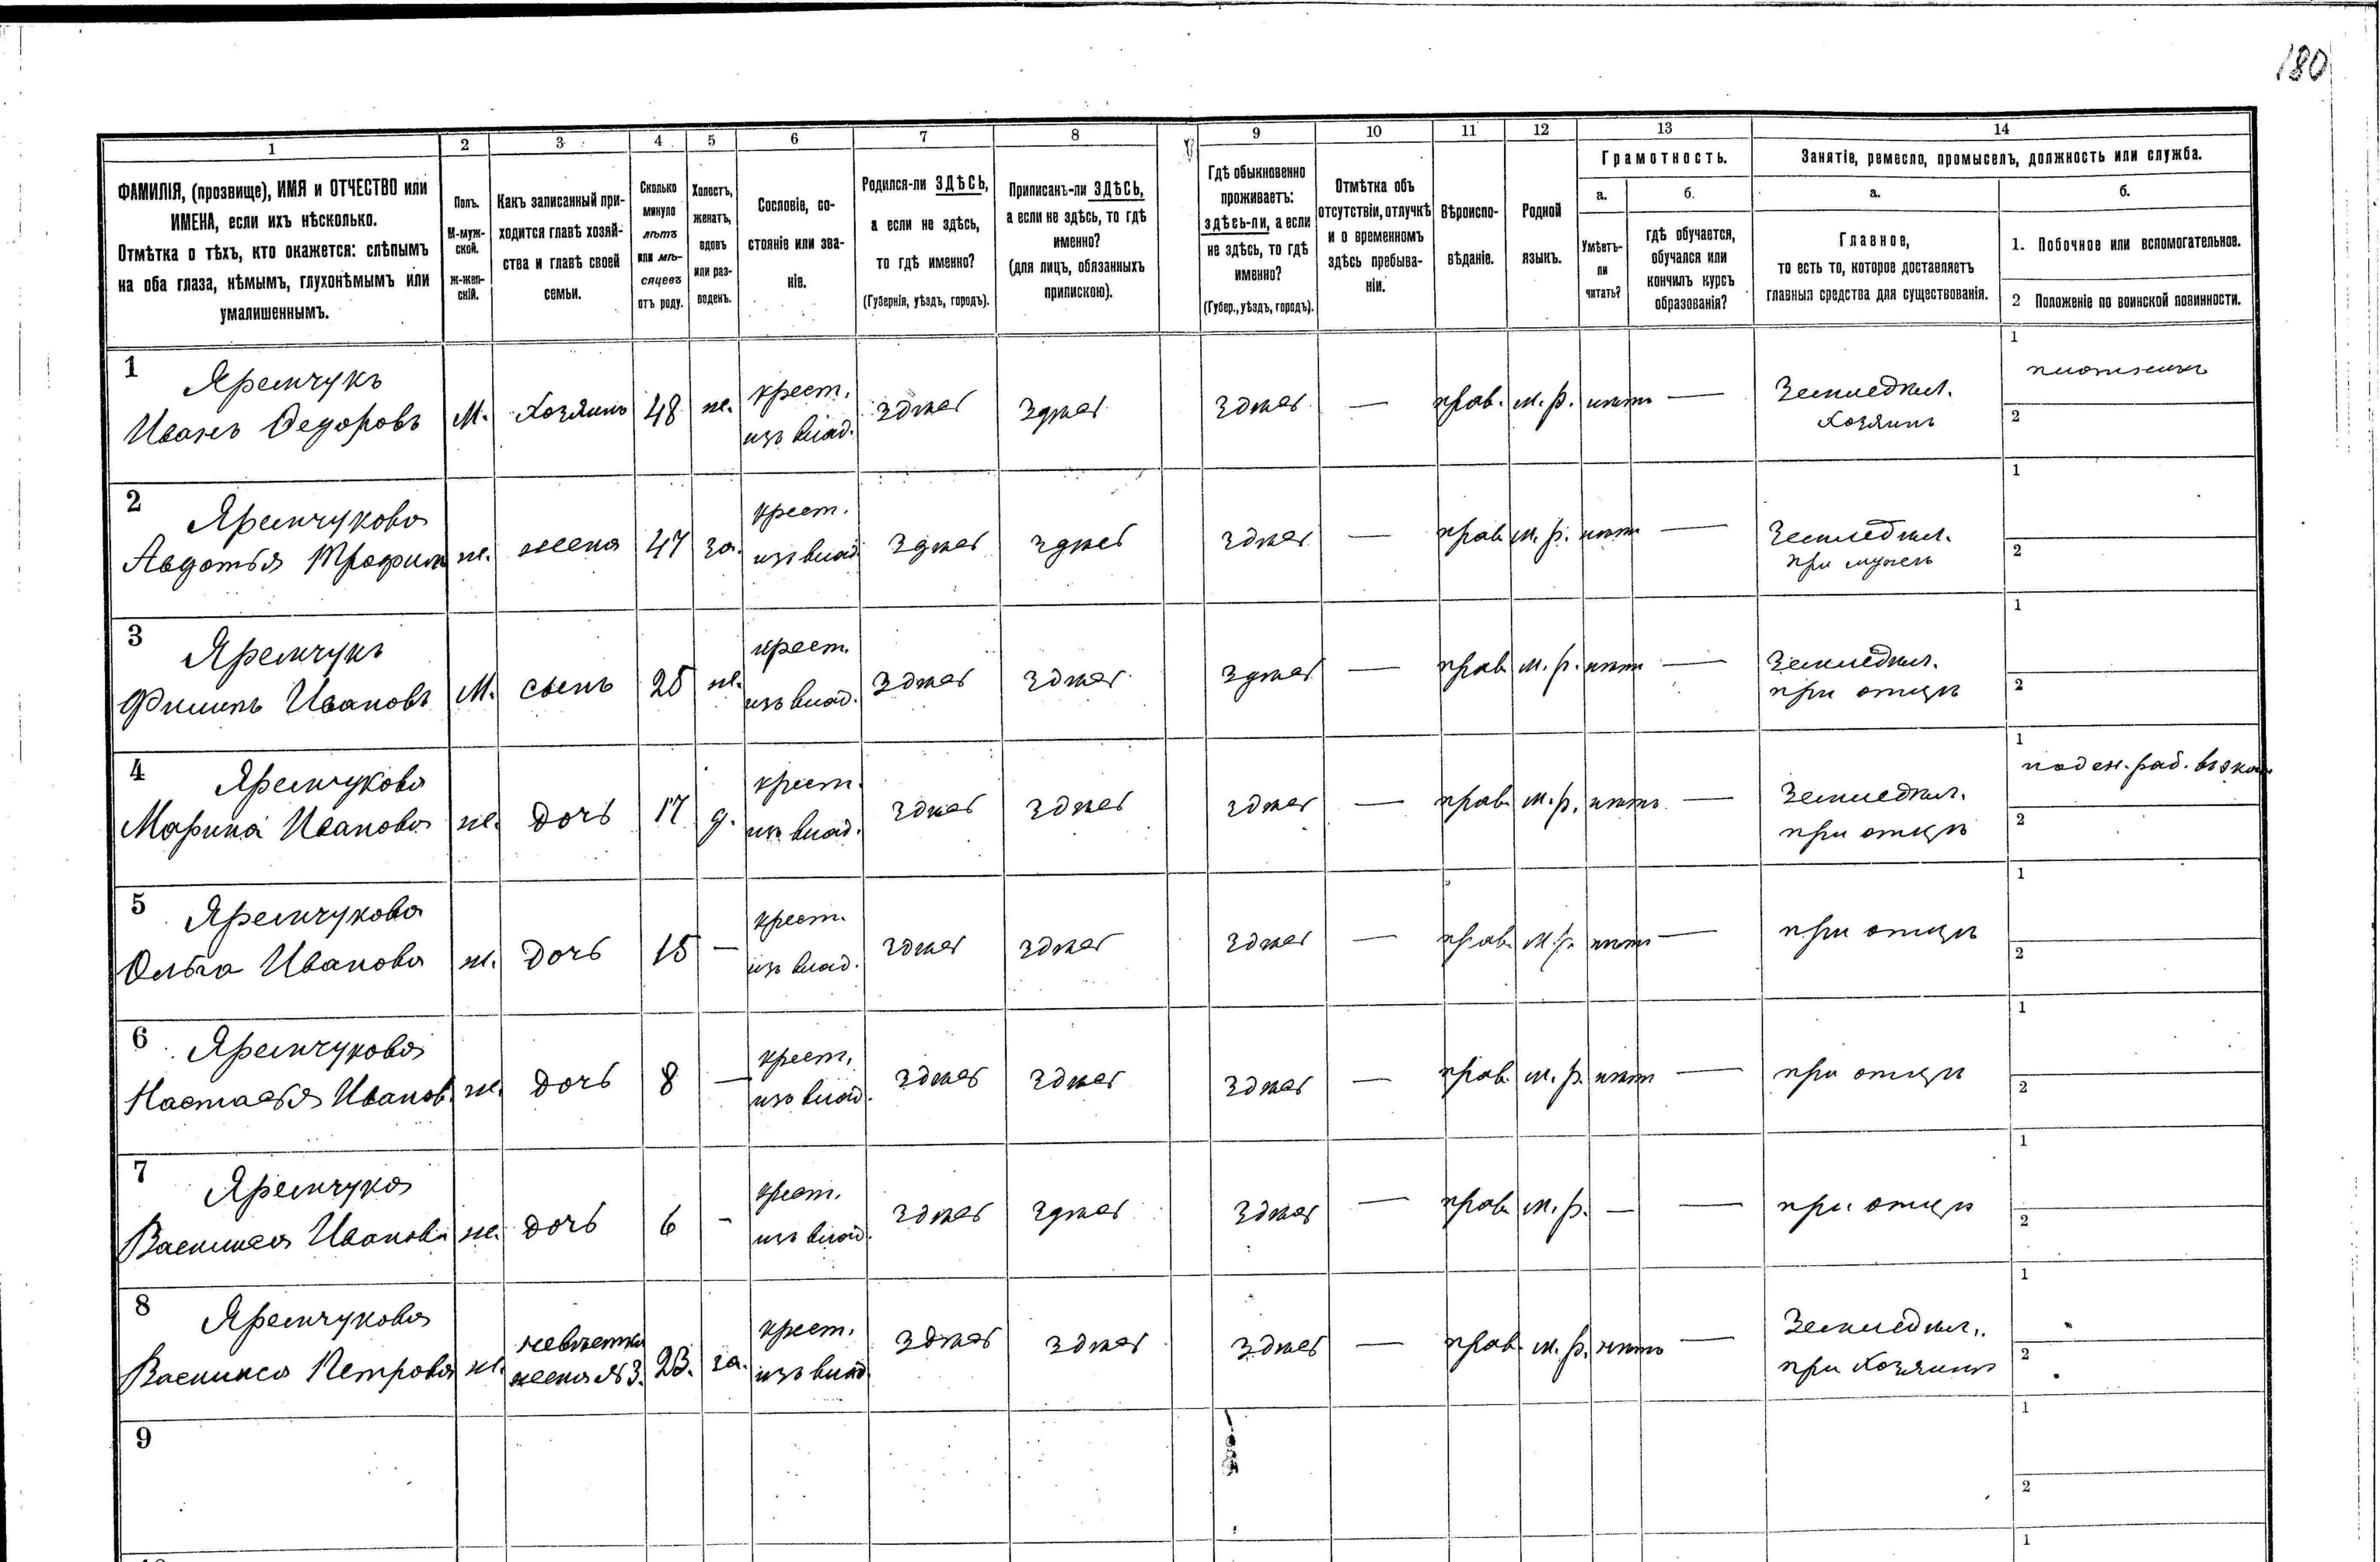 180
1 2 3 4 5 6 7 8 9 10 11 12 13 14
ФАМИЛІЯ, (прозвище), ИМЯ и ОТЧЕСТВО или
ИМЕНА, если ихъ нѣсколько.
Отмѣтка о тѣхъ, кто окажется: слѣпымъ
на оба глаза, нѣмымъ, глухонѣмымъ или
умалишеннымъ.
Полъ.
М-муж-
ской.
ж-жен-
скій.
Какъ записанный при-
ходится главѣ хозяй-
ства и главѣ своей
семьи.
Сколько
минуло
лѣтъ
или мѣ-
сяцевъ
отъ роду.
Холостъ,
женатъ,
вдовъ
или раз-
веденъ.
Сословіе, со-
стояніе или зва-
ніе.
Родился-ли ЗДѢСЬ,
а если не здѣсь,
то гдѣ именно?
(Губернія, уѣздъ, городъ).
Приписанъ-ли ЗДѢСЬ,
а если не здѣсь, то гдѣ
именно?
(для лицъ, обязанныхъ
припискою).
Гдѣ обыкновенно
проживаетъ:
здѣсь-ли, а если
не здѣсь, то гдѣ
именно?
(Губер., уѣздъ, городъ).
Отмѣтка объ
отсутствіи, отлучкѣ
и о временномъ
здѣсь пребыва-
ніи.
Вѣроиспо-
вѣданіе.
Родной
языкъ.
Грамотность.
а.
Умѣетъ-
ли
читать?
б.
гдѣ обучается,
обучался или
кончилъ курсъ
образованія?
Занятіе, ремесло, промыселъ, должность или служба.
а.
Главное,
то есть то, которое доставляетъ
главныя средства для существованія.
б.
1. Побочное или вспомогательное.
2 Положеніе по воинской повинности.
1 Яремчукъ
Иванъ Федоровъ М. Хозяинъ 48 ж. крест. изъ влад. здѣсь здѣсь здѣсь — прав. м. р. нѣтъ — Земледѣл. Хозяинъ 1 плотникъ 2
2 Яремчукова
Авдотья Трофим ж. жена 47 за. крест. изъ влад здѣсь здѣсь здѣсь — прав м. р. нѣтъ — Земледѣл. при мужѣ 1 2
3 Яремчукъ
Филипъ Ивановъ М. сынъ 25 ж. крест. изъ влад. здѣсь здѣсь здѣсь — прав м. р. нѣтъ — Земледѣл. при отцѣ 1 2
4 Яремчукова
Марина Иванова ж. дочь 17 д. крест. изъ влад. здѣсь здѣсь здѣсь — прав. м. р. нѣтъ — Земледѣл. при отцѣ 1 поден. раб. 2
5 Яремчукова
Ольга Иванова ж. дочь 15 — крест. изъ влад. здѣсь здѣсь здѣсь — прав. м. р. нѣтъ — при отцѣ 1 2
6 Яремчукова
Настасья Иванов. ж. дочь 8 — крест. изъ влад. здѣсь здѣсь здѣсь — прав. м. р. нѣтъ — при отцѣ 1 2
7 Яремчука
Василиса Иванова ж. дочь 6 - крест. изъ влад. здѣсь здѣсь здѣсь — прав. м. р. — — при отцѣ 1 2
8 Яремчукова
Василиса Петрова ж. невѣстка жена №3. 23. за. крест. изъ влад. здѣсь здѣсь здѣсь — прав. м. р. нѣтъ — Земледѣл. при Хозяинѣ 1 2
9 1 2
1